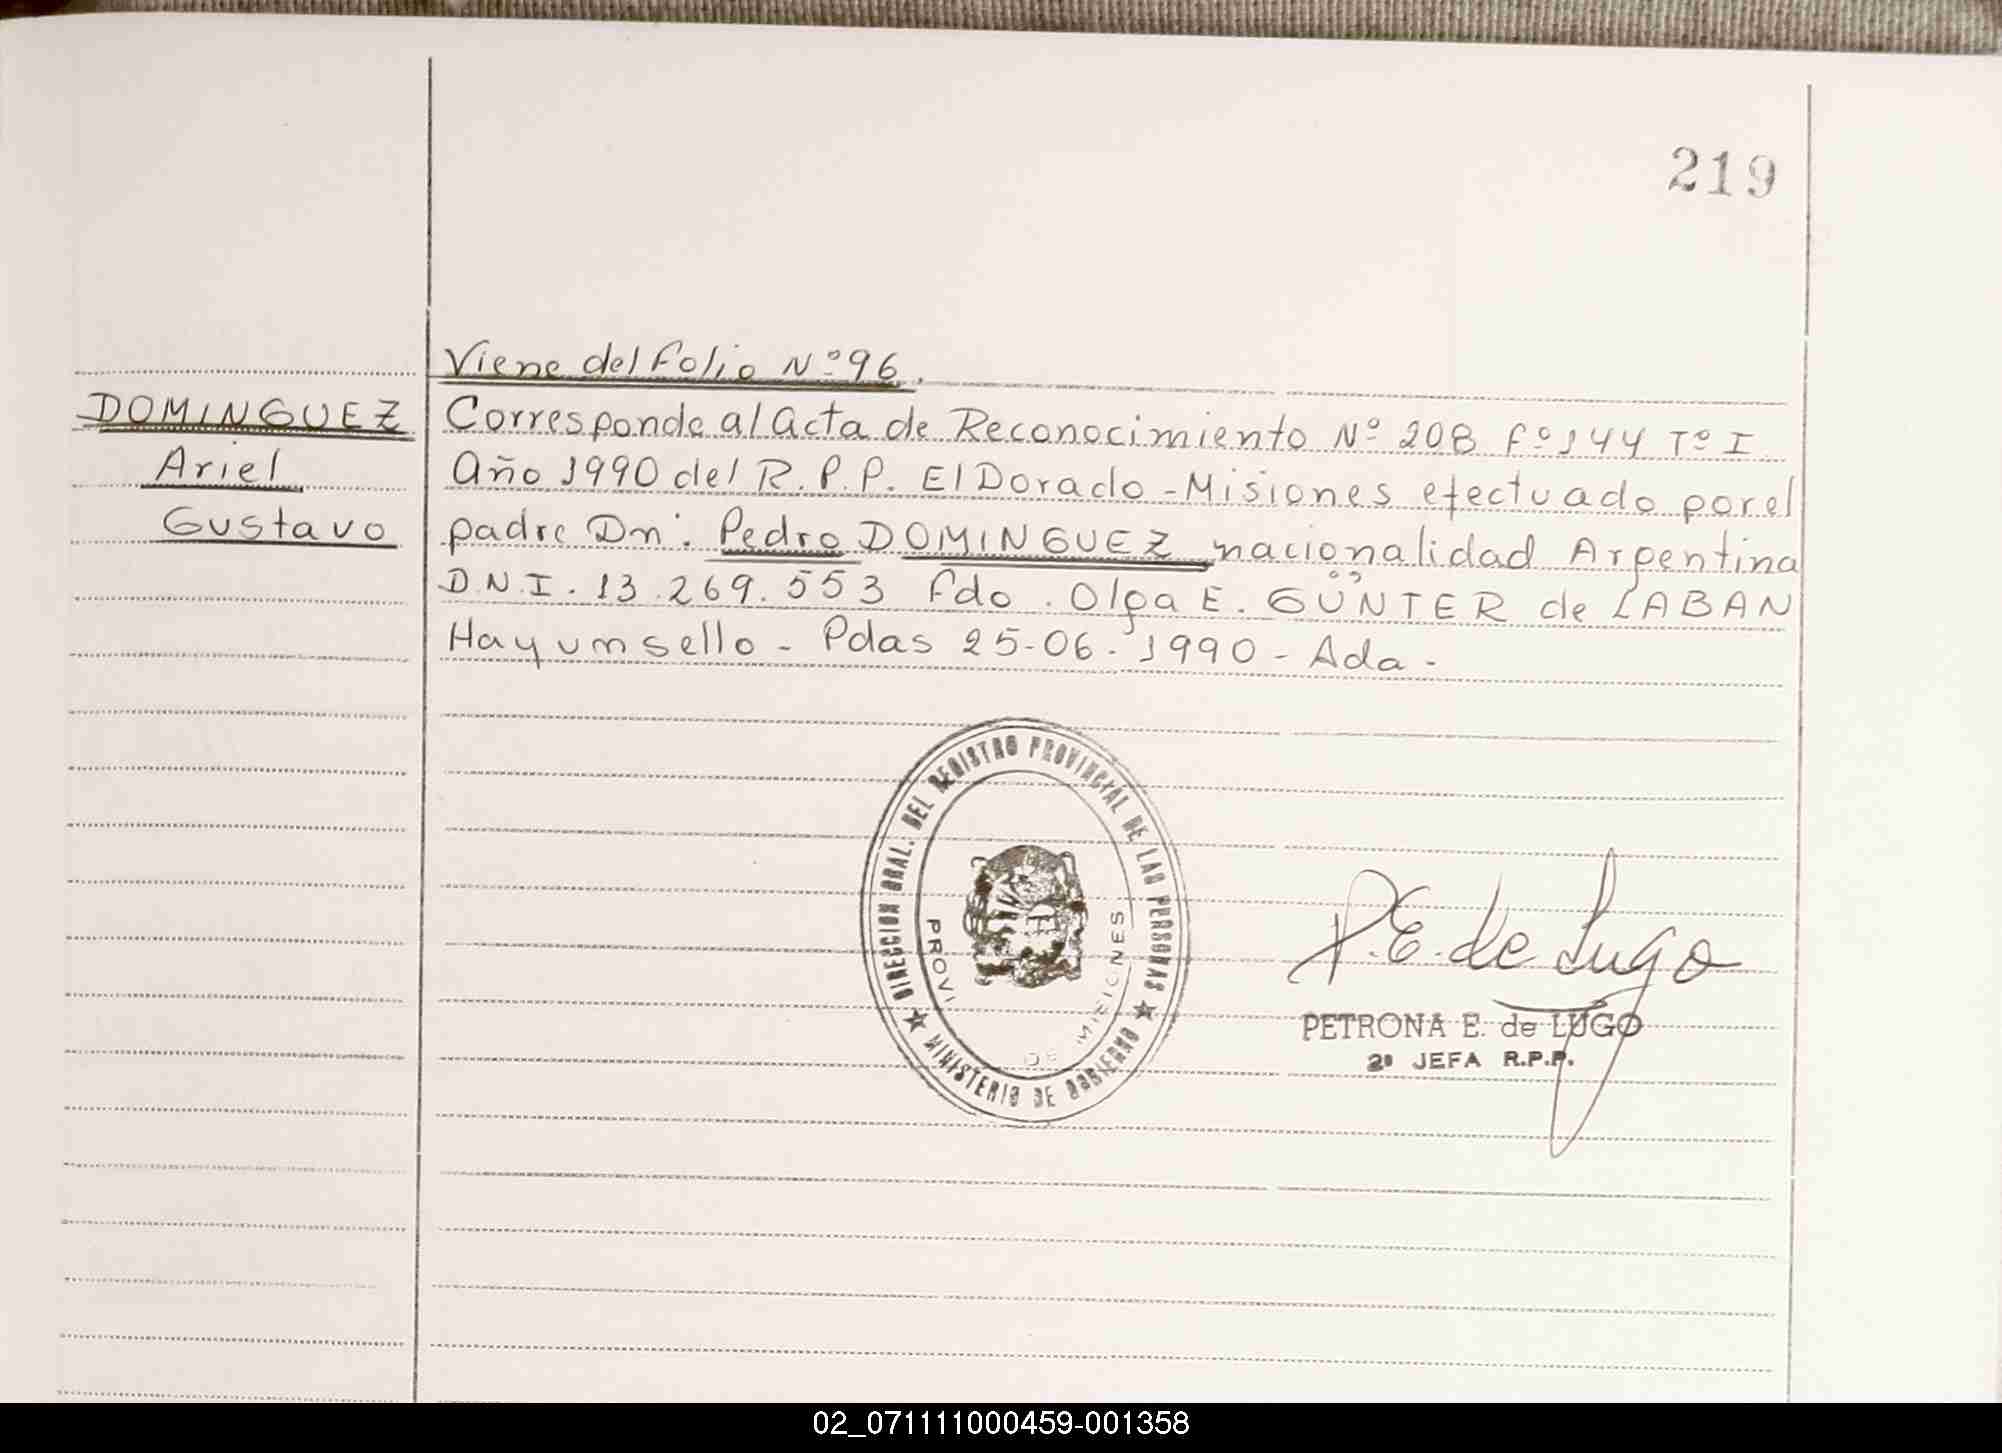 219
Viene del Folio Nº 96.
DOMINGUEZ
Ariel
Gustavo
Corresponde al Acta de Reconocimiento Nº 208 Fº 144 Tº I
Año 1990 del R.P.P. El Dorado - Misiones efectuado por el
padre Dn. Pedro DOMINGUEZ nacionalidad Argentina
D.N.I. 13.269.553 Fdo. Olga E. GÜNTER de LABAN
Hay un sello - Pdas 25-06-1990 - Ada -
DIRECCION GRAL. DEL REGISTRO PROVINCIAL DE LAS PERSONAS
MINISTERIO DE GOBIERNO
PROVI
DE MISIONES
P.E. de Lugo
PETRONA E. de LUGO
2ª JEFA R.P.P.
02_071111000459-001358